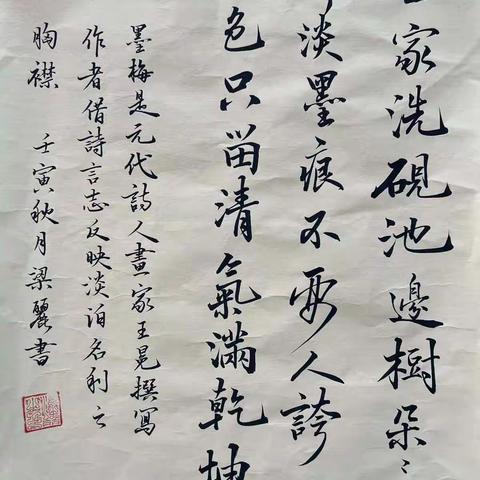 家洗硯池邊樹朵〻
淡墨痕不要人誇
色只留清氣滿乾坤
墨梅是元代詩人畫家王冕撰寫
作者借詩言志反映淡泊名利之
胸襟 壬寅秋月梁麗書